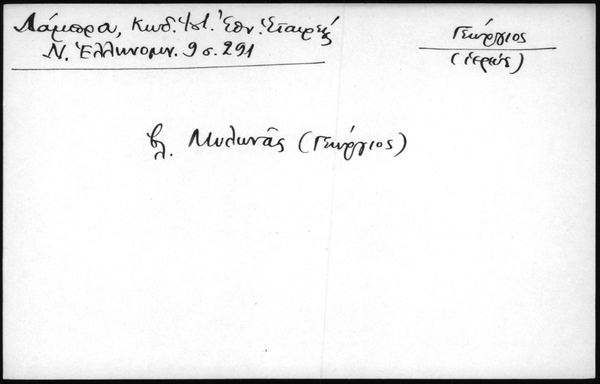 Λάμπρου, Κωδ. Ἱστ. Ἐθν. Ἑταιρείας
Ν. Ἑλληνομν. 9 σ. 291
Γεώργιος
(ἱερεύς)
βλ. Μυλωνᾶς (Γεώργιος)